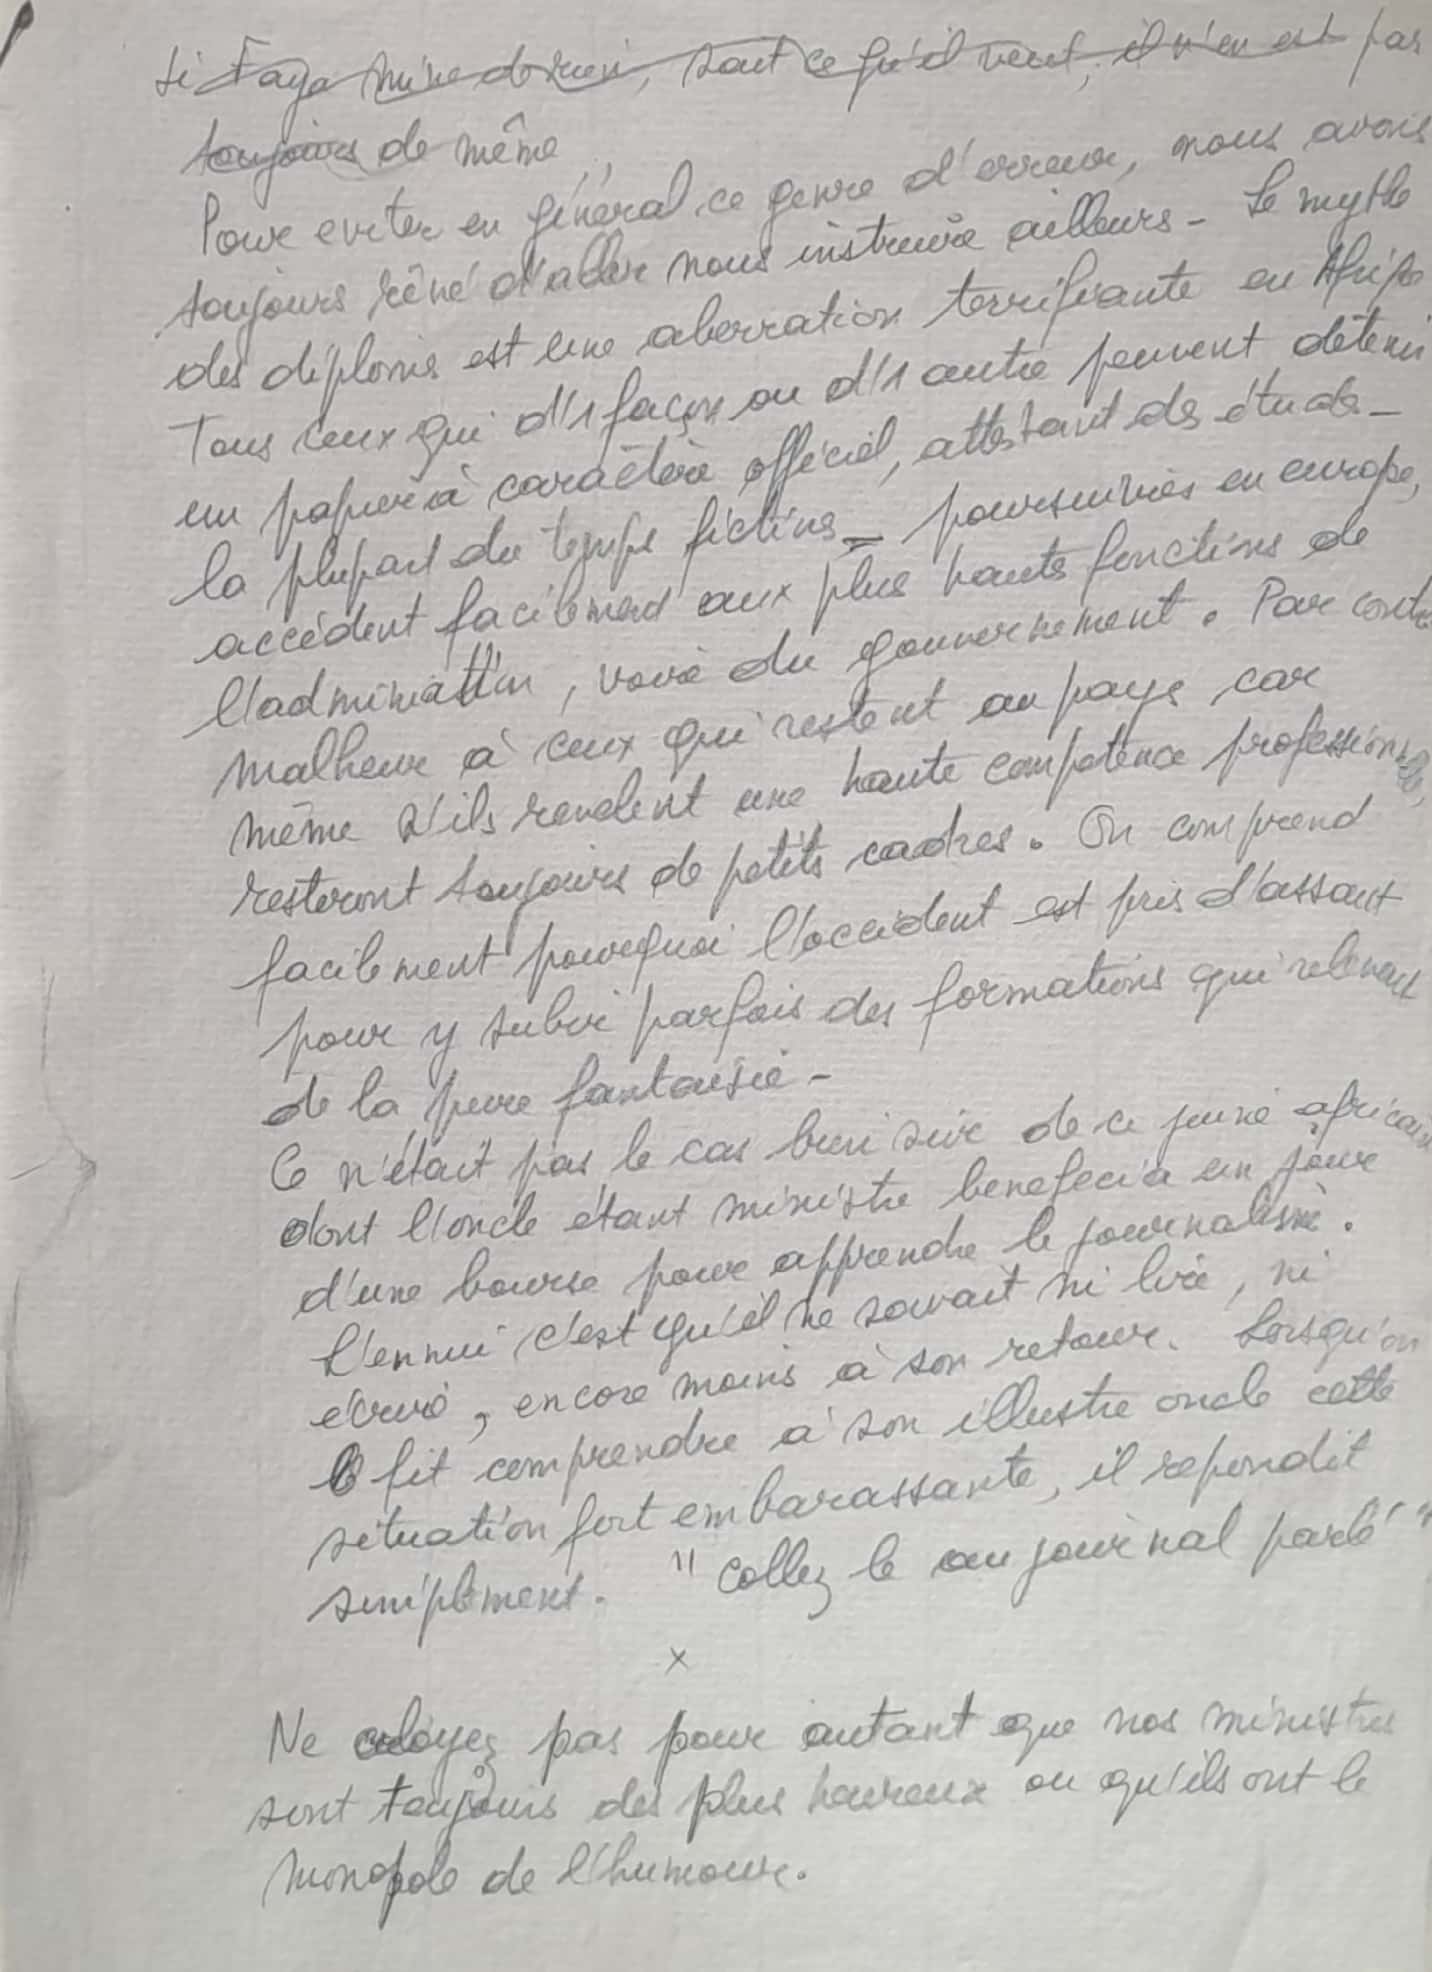 si Faya mine de rien, sait ce qu'il veut, il n'en est pas
toujours de même.
Pour eviter en général ce genre d'erreur, nous avons
toujours rêvé d'aller nous instruire ailleurs - Le mythe
des diploms est une aberration terrifiante en
Tous ceux qui d'1 façon ou d'1 autre peuvent détenir
un papier à caractère officiel, attestant des études -
la plupart du temps fictives - poursuivies en europe,
accèdent facilement aux plus hautes fonctions de
l'administt'on, voire du gouvernement. Par contre
malheur à ceux qui restent au pays car
même s'ils revelent une haute competence professionnelle,
resteront toujours de petits cadres. On comprend
facilement pourquoi l'occident est pris d'assaut
pour y subir parfois des formations qui relèvent
de la pure fantaisie -
Ce n'était pas le cas bien sûr de ce jeune africain
dont l'oncle étant ministre beneficia un jour
d'une bourse pour apprendre le journalisme.
L'ennui c'est qu'il ne savait ni lire, ni
écrire, encore moins à son retour. Lorsqu'on
fit comprendre à son illustre oncle cette
situation fort embarassante, il repondit
simplement. "collez le au journal parlé"
x
Ne croyez pas pour autant que nos ministres
sont toujours des plus heureux ou qu'ils ont le
monopole de l'humour.